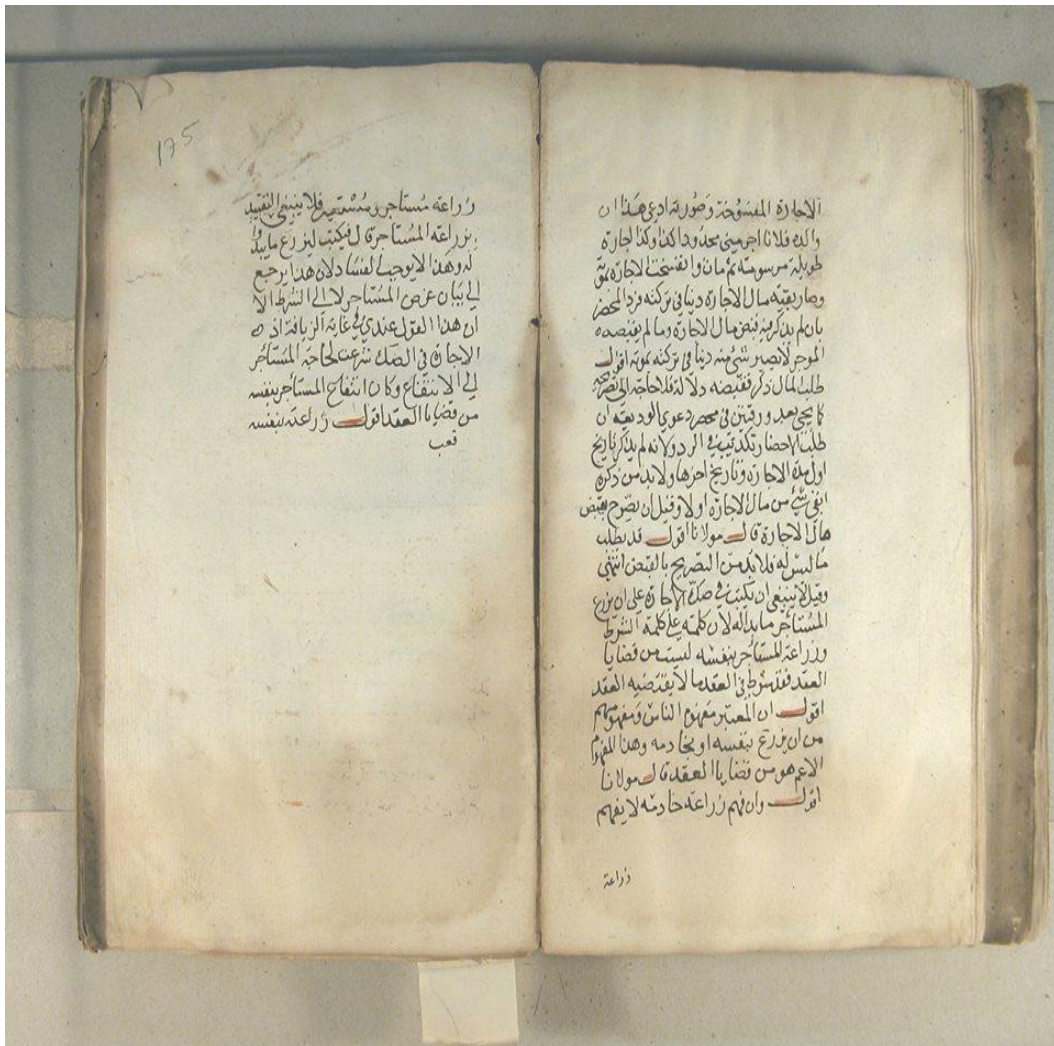 الاجارة المفسوخة وصورته ادعى هذا ان
والده فلانا اجر مني محدودا كذا وكذا اجارة
طويلة مرسومة ثم مات وانفسخت الاجارة بموته
وصار بقية مال الاجارة دينا في تركته فرد المحضر
بان لم يذكر فيه قبض مال الاجارة وما لم يقبضه
الموجر لا يصير شئ منه دينا في تركته بموته اقول
طلب المال ذكر فقبضه دلالة فلا حاجة الى تصريحه
كما يجئ بعد ورقتين في محضر دعوى الوديعة ان
طلب الاحضار تكذيب في الرد ولانه لم يذكر تاريخ
اول مدة الاجارة وتاريخ اخرها ولابد من ذكره
ابقى شئ من مال الاجارة اولا وقبل ان يصرح بقبض
مال الاجارة قال مولانا اقول قد يطلب
ما ليس له فلابد من التصريح بالقبض انتهى
وقيل لا ينبغي ان يكتب في صك الاجارة على ان يزرع
المستأجر ما بدا له لان كلمة على كلمة الشرط
وزراعة المستأجر بنفسه ليست من قضايا
العقد فقد شرط في العقد ما لا يقتضيه العقد
اقول ان المعتبر مفهوم الناس ومفهومهم
من ان يزرع بنفسه او بخادمه وهذا المفهوم
الاعم هو من قضايا العقد قال مولانا
اقول وان فهم زراعة خادمه لا يفهم
زراعة
175
زراعة مستاجر ومستعير فلا ينبغي التقييد
بزراعة المستاجر قال فيكتب ليزرع ما يبدوا
له وهذا لا يوجب الفساد لان هذا يرجع
الى بيان غرض المستاجر لا الى الشرط الا
ان هذا القول عندي في غاية الزيافة اذ
الاجارة في الصك شرعت لحاجة المستأجر
الى الانتفاع وكان انتفاع المستأجر بنفسه
من قضايا العقد اقول زراعته بنفسه